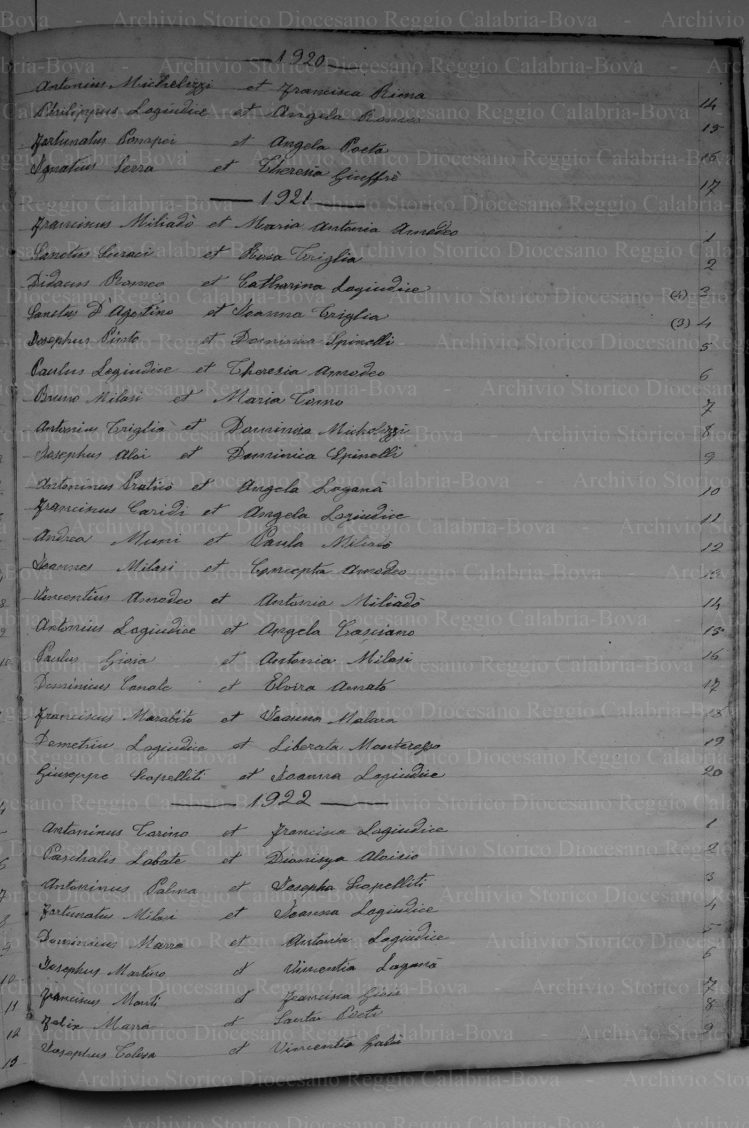 1920
Antonius Michelizzi et Francisca Riena 14
Philippus Logiudice et Angela Romeo 15
Fortunatus Pompei et Angela Poeta 16
Ignatius Serra et Theresia Giuffrè 17
1921
Franciscus Miliadò et Maria Antonia Amodeo 1
Sanctus Curaci et Rosa Triglia 2
Didacus Romeo et Catharina Logiudice (4) 3
Sanctus D'Agostino et Joanna Triglia (3) 4
Josephus Pinto et Dominica Spinelli 5
Paulus Logiudice et Theresia Amodeo 6
Bruno Milasi et Maria Como 7
Antonius Triglia et Dominica Michelizzi 8
Josephus Aloi et Dominica Spinelli 9
Antoninus Praticò et Angela Laganà 10
Franciscus Caridi et Angela Logiudice 11
Andrea Muni et Paula Miliadò 12
Joannes Milasi et Concepta Amodeo 13
Vincentius Amodeo et Antonia Miliadò 14
Antonius Logiudice et Angela Casciano 15
Paulus Gioia et Antonia Milasi 16
Dominicus Canale et Elvira Amato 17
Franciscus Marabito et Joanna Malara 18
Demetrius Logiudice et Liberata Monterosso 19
Giuseppe Scopelliti et Joanna Logiudice 20
1922
Antoninus Tarino et Francisca Logiudice 1
Paschalis Labate et Dionisya Aloisio 2
Antoninus Palma et Josepha Scopelliti 3
Fortunatus Milasi et Joanna Logiudice 4
Dominicus Marra et Antonia Logiudice 5
Josephus Martino et Vincentia Laganà 6
Franciscus Monti et Francisca Gioia 7
Felix Marra et Santa Poeti 8
Josephus Calesa et Vincentia 9